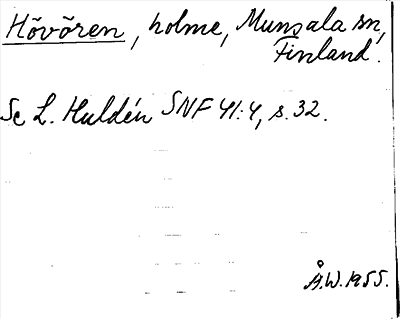 Hövören, holme, Munsala sn,
Finland.
Se L. Huldén SNF 41:4, s. 32.
Å.W. 1955.